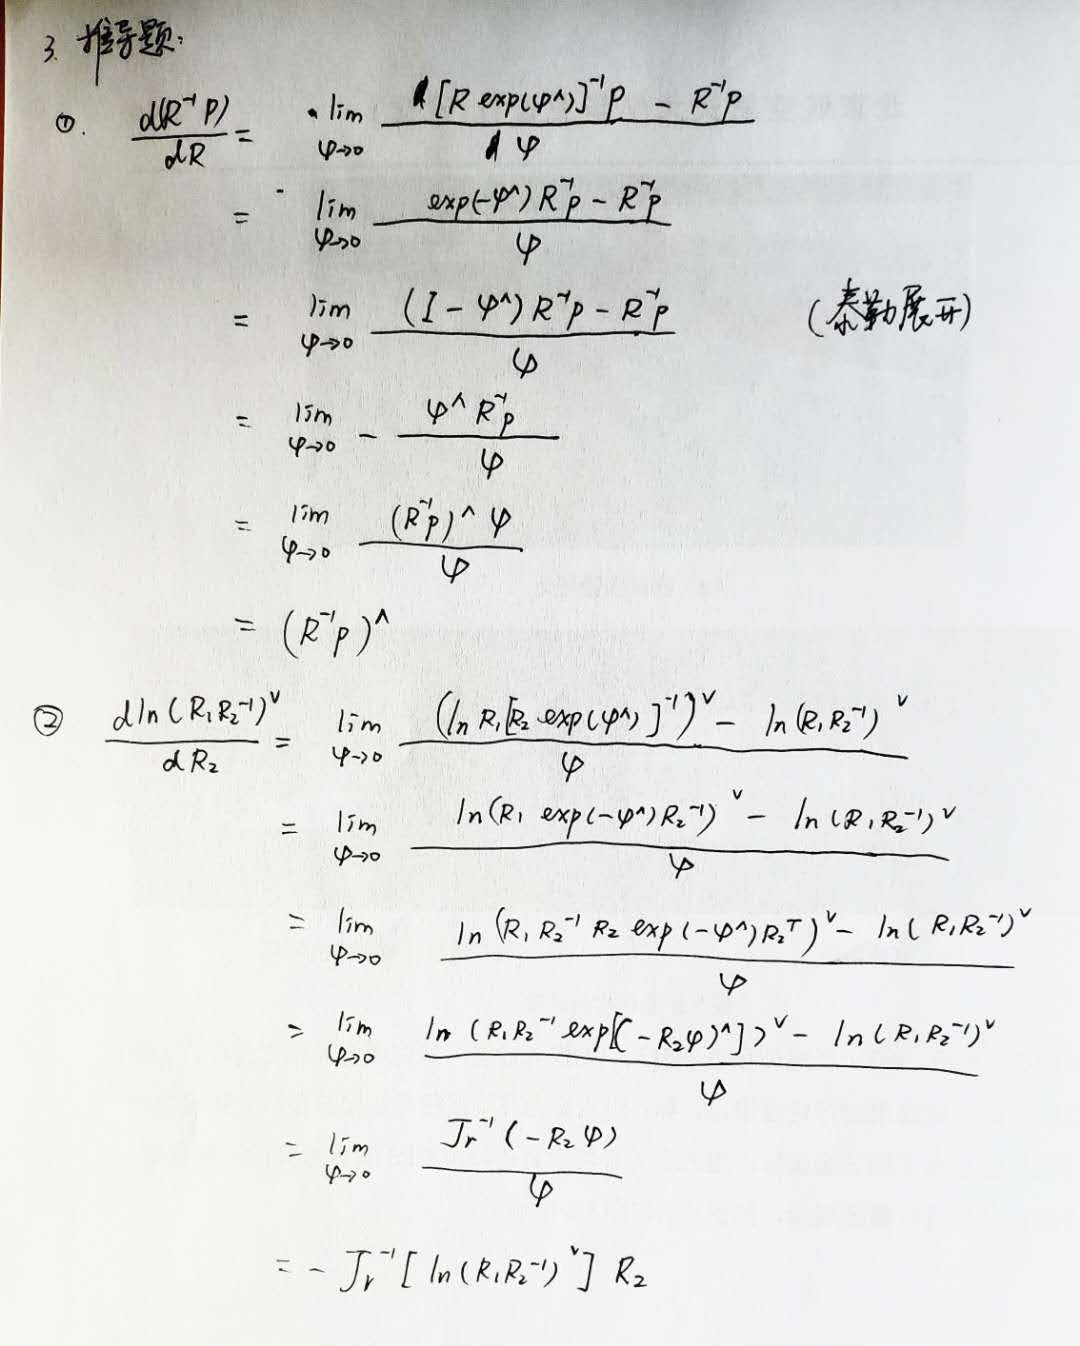 3. 推导题:
①. d(R⁻¹P)/dR = lim_{φ→0} ([R exp(φ^)]⁻¹P - R⁻¹P)/φ
= lim_{φ→0} (exp(-φ^)R⁻¹P - R⁻¹P)/φ
= lim_{φ→0} ((I - φ^)R⁻¹P - R⁻¹P)/φ (泰勒展开)
= lim_{φ→0} - (φ^ R⁻¹P)/φ
= lim_{φ→0} ((R⁻¹P)^ φ)/φ
= (R⁻¹P)^
② d ln(R₁R₂⁻¹)^∨/dR₂ = lim_{φ→0} ((ln R₁[R₂ exp(φ^)]⁻¹)^∨ - ln(R₁R₂⁻¹)^∨)/φ
= lim_{φ→0} (ln(R₁ exp(-φ^)R₂⁻¹)^∨ - ln(R₁R₂⁻¹)^∨)/φ
= lim_{φ→0} (ln(R₁R₂⁻¹R₂ exp(-φ^)R₂ᵀ)^∨ - ln(R₁R₂⁻¹)^∨)/φ
= lim_{φ→0} (ln(R₁R₂⁻¹ exp[(-R₂φ)^])^∨ - ln(R₁R₂⁻¹)^∨)/φ
= lim_{φ→0} (Jr⁻¹(-R₂φ))/φ
= - Jr⁻¹[ln(R₁R₂⁻¹)^∨] R₂